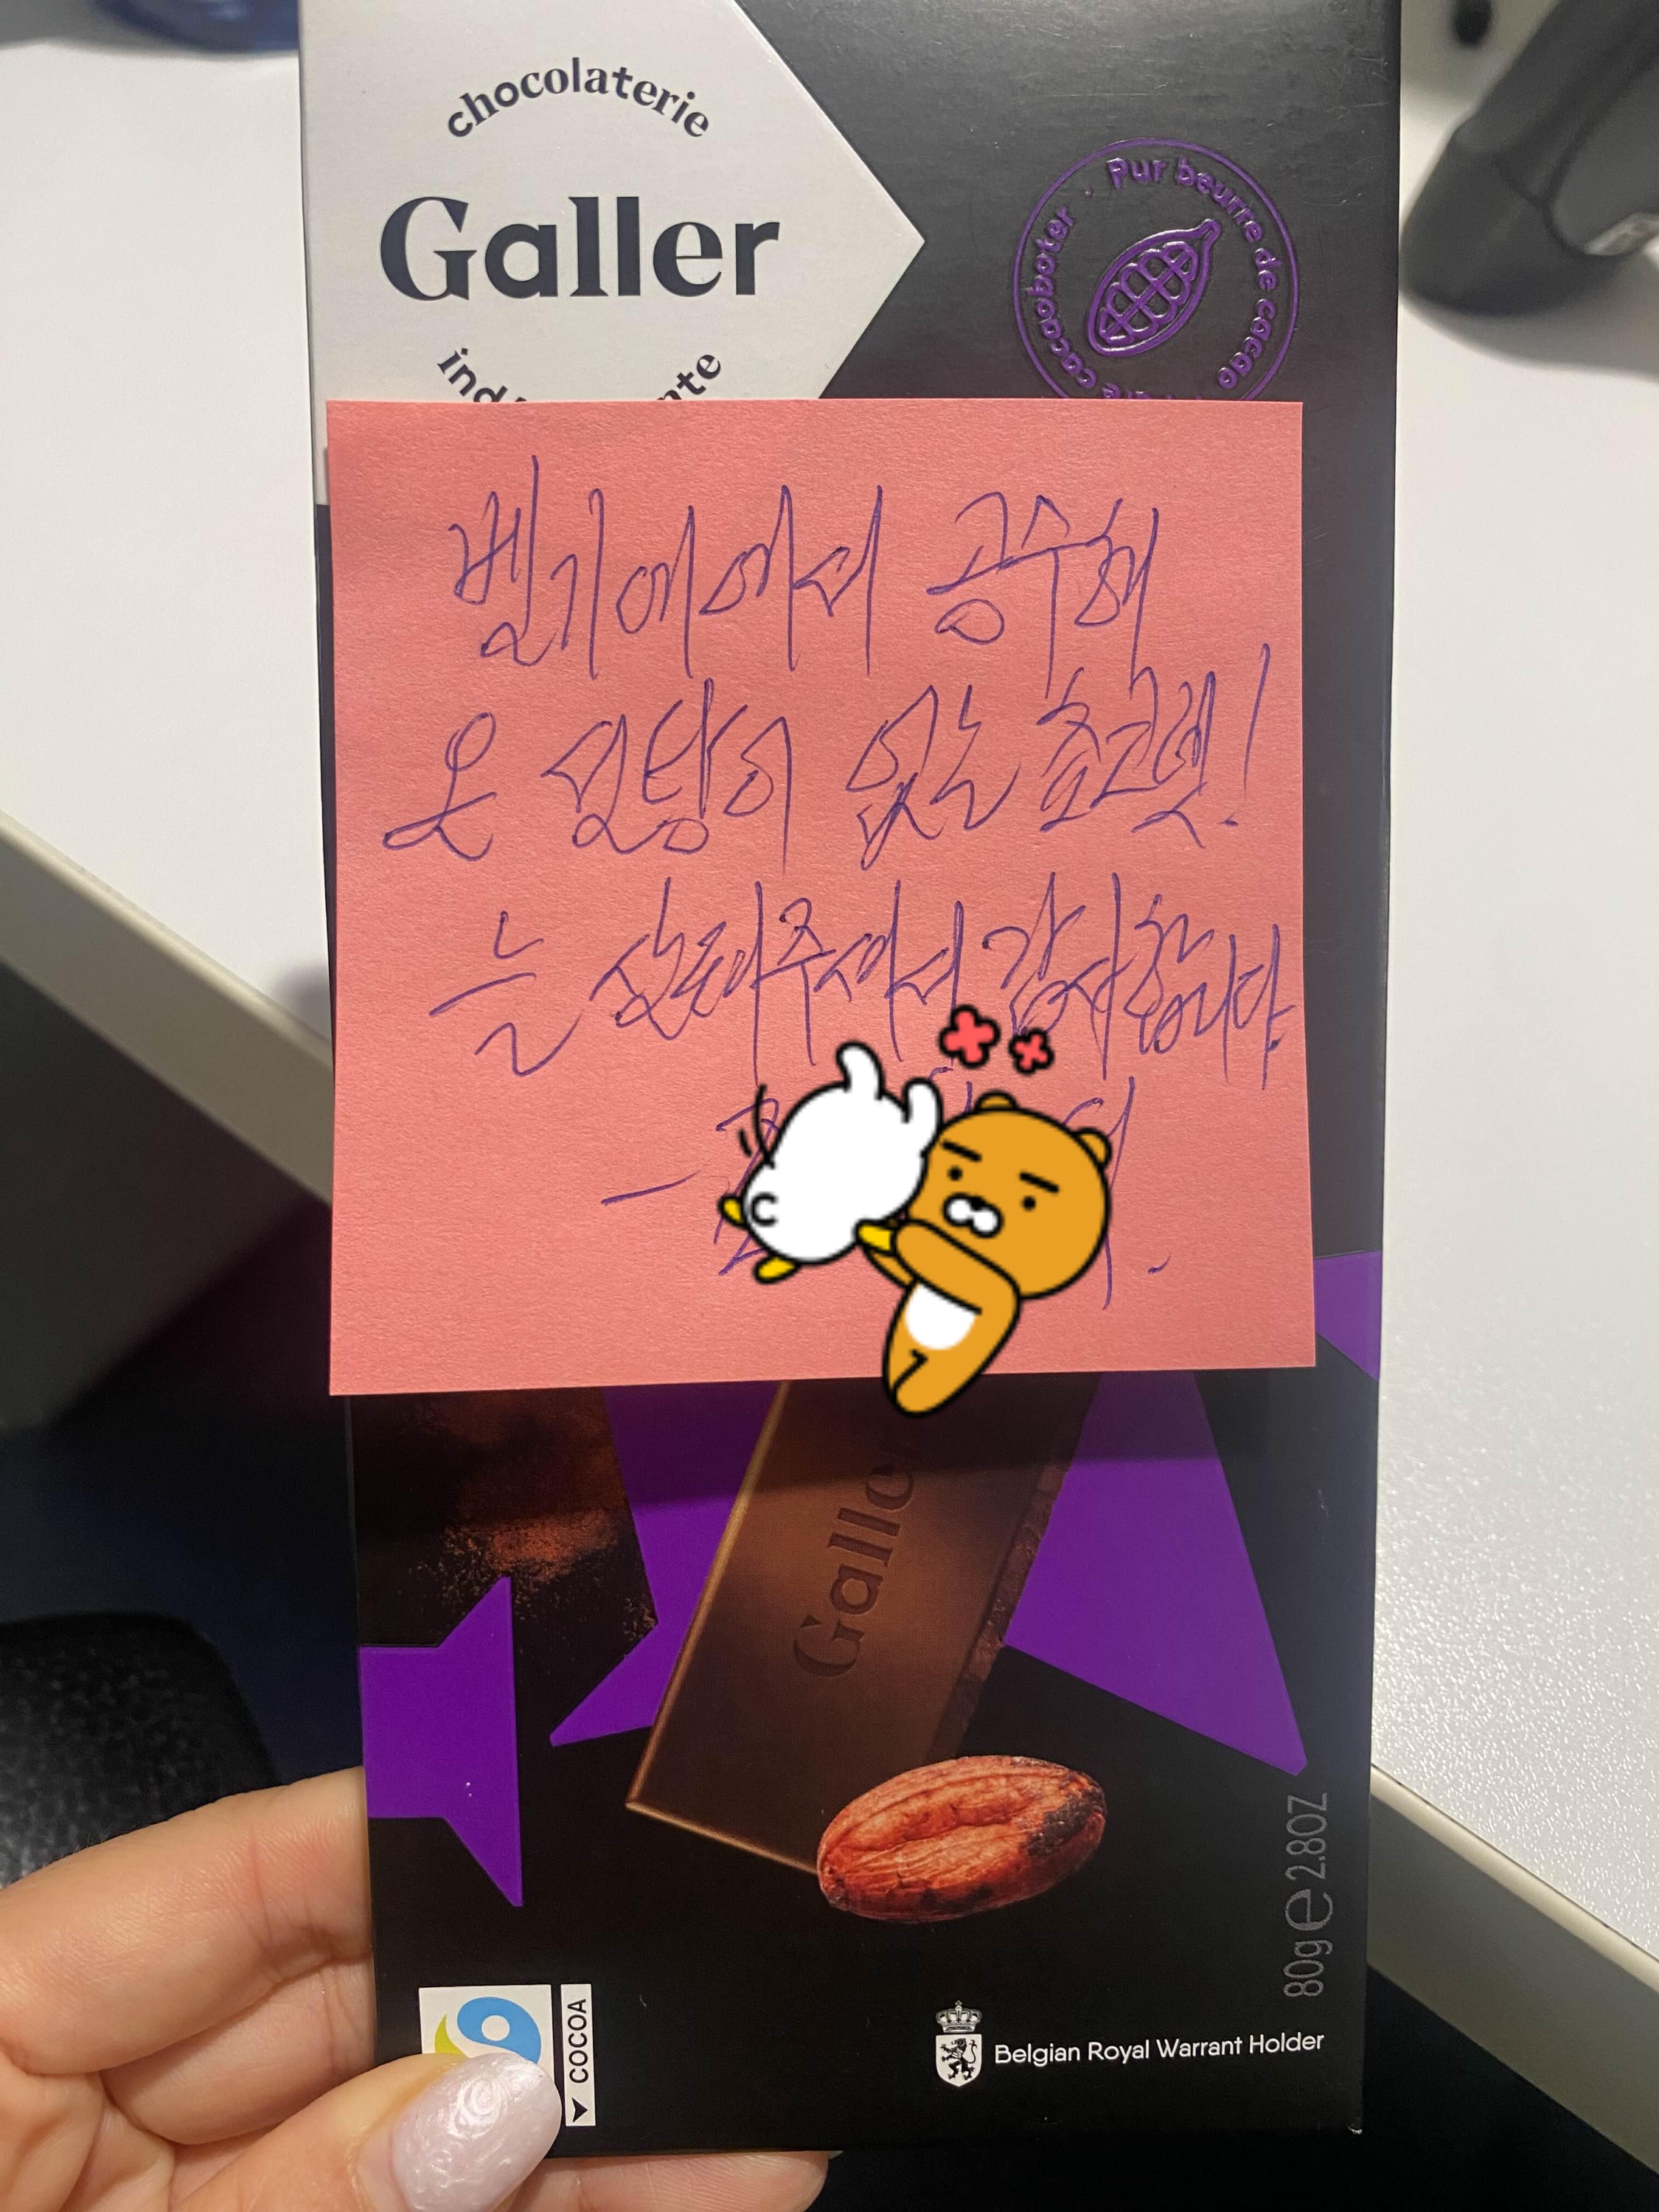 chocolaterie
Galler
Pur beurre de cacao
cacaoboter
벨기에에서 공수해
온 설탕이 없는 초코렛!
늘 살펴주셔서 감사합니다.
Galler
80g e 2.8OZ
COCOA
Belgian Royal Warrant Holder